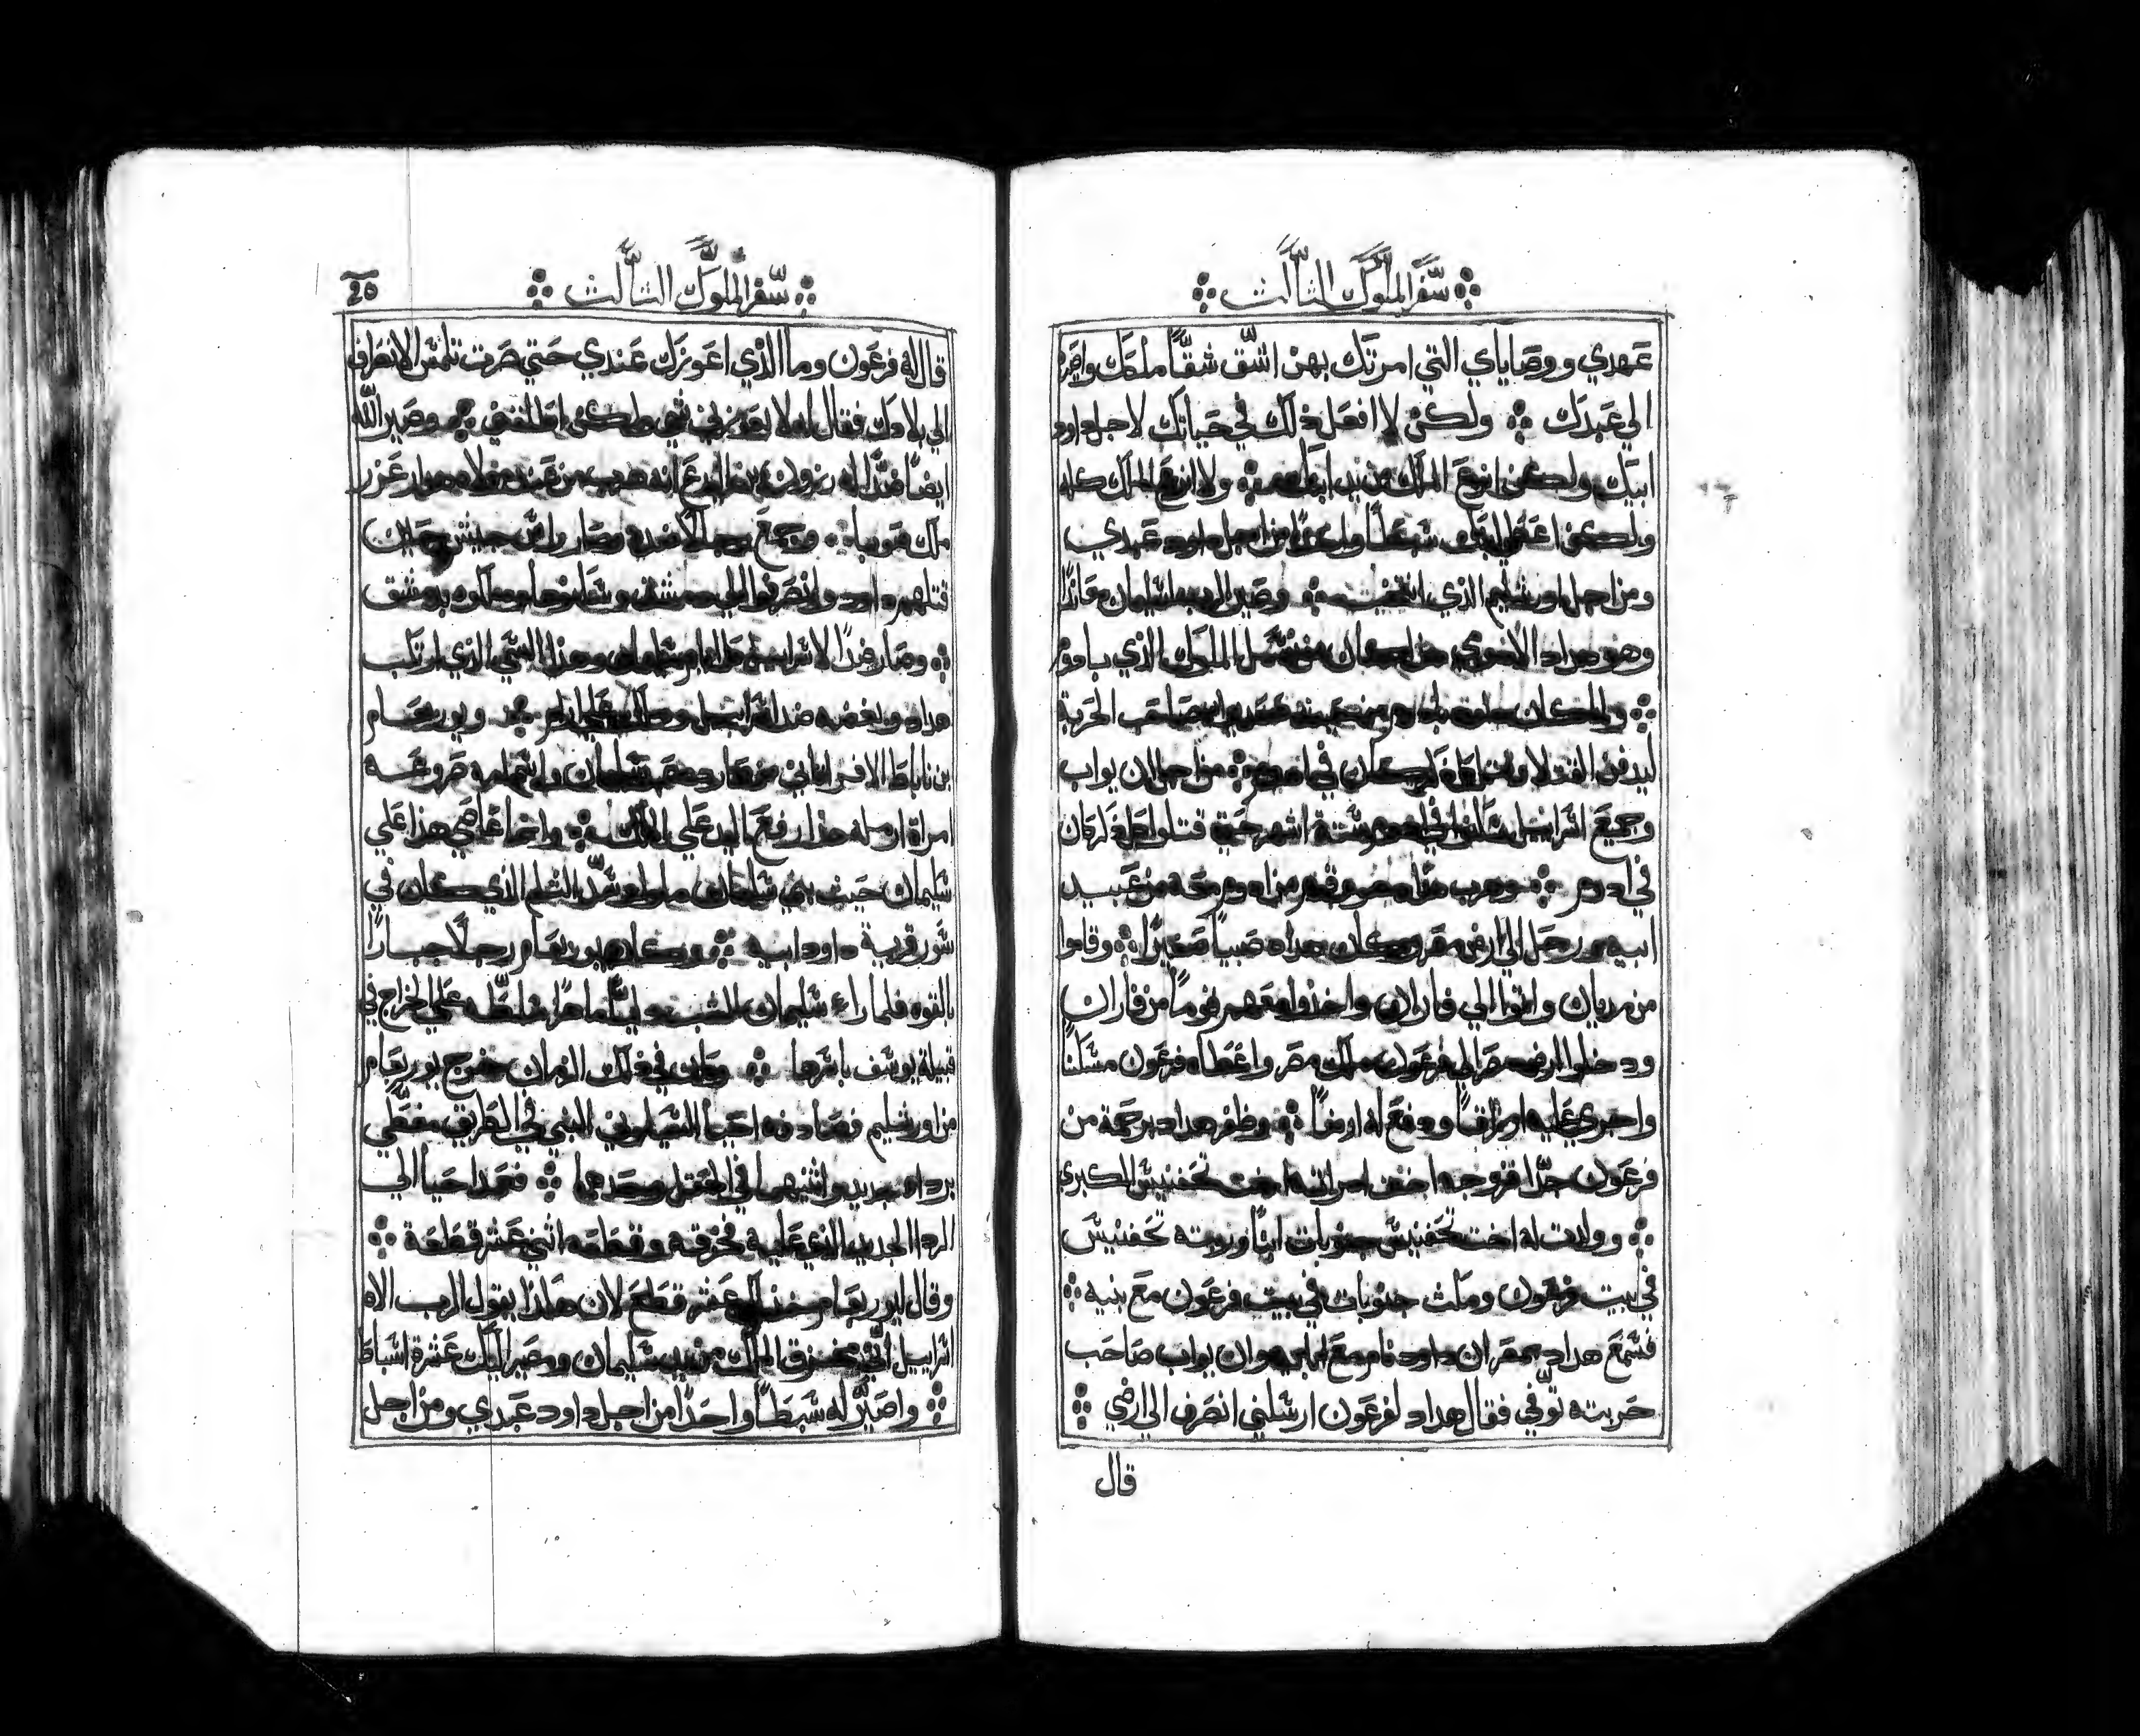 سفر الملوك الثالث
عهدي ووصاياي التي امرتك بهن اشق شقًا ملكك واصيره
الي عبدك ولكن لا افعل ذلك في حياتك لاجل داود
ابيك ولكن انزع الملك من يد ابنك ولا انزع الملك كله
ولكن اعطي ابنك سبطًا واحدًا من اجل داود عبدي
ومن اجل اورشليم الذي انتخبت وصير الرب لسليمان معاندًا
وهو هداد الادومي من نسل الملوك الذي بادوم
صاحب الحربة
ليدفن القتلا في ادوم من اجل ان يواب
وجميع اسراييل ستة اشهر حتي قتلوا كل ذكر كان
في ادوم وهرب هداد وقوم من ادوم معه من عبيد
ابيه ودخل الي ارض مصر وكان هداد صبيًا صغيرًا وقاموا
من مديان واتوا الي فاران واخذوا معهم قومًا من فاران
ودخلوا ارض مصر الي فرعون ملك مصر واعطاه فرعون مسكنًا
واجري عليه ارزاقًا ودفع له ارضًا وظفر هداد برحمة من
فرعون جدًا فزوجه اخت امراته اخت تحفنيس الكبري
وولدت له اخت تحفنيس جنوبات ابنًا وربته تحفنيس
في بيت فرعون ومكث جنوبات في بيت فرعون مع بنيه
فسمع هداد بمصر ان داود نام مع ابايه وان يواب صاحب
حربته توفي فقال هداد لفرعون ارسلني انصرف الي ارضي
قال
سفر الملوك الثالث
20
قال له فرعون وما الذي اعوزك عندي حتي صرت تلتمس الانصراف
الي بلادك فقال له لا يعوزني شي لكن اطلقني وصير الله
ايضًا ضدًا له رزون بن اليدع انه هرب من عند مولاه هدار عزر
ملك صوبا وجمع رجالًا عنده وصار راس جيش حين
قتلهم داود وانصرفوا الي دمشق وسكنوها وملكوه بدمشق
وصار ضدًا لاسراييل كل ايام سليمان وهذا الشي الذي ارتكب
هداد وبغضه ضد اسراييل وملك علي ادوم ويوربعام
بن ناباط الافراثاني من صارده عبد سليمان واسم امه صروعه
امراة ارمله هذا رفع اليد علي الملك وانما عاصي هذا علي
سليمان حيث بني سليمان ملوا وسد الثلم الذي كان في
سور قرية داود ابيه وكان يوربعام رجلًا جبارًا
بالقوه فلما راء سليمان الشب دايبًا ماهرًا سلطه علي الخراج في
قبيلة يوسف باسرها وكان في ذلك الزمان خرج يوربعام
من اورشليم فصادفه احيا الشيلوني النبي في الطريق مغطي
برداء جديد واثنيهما في الحقل وحدهما فعمد احيا الي
الردا الجديد الذي عليه فخرقه وقطعه اثني عشر قطعة
وقال ليوربعام خذ لك عشر قطع لان هكذا يقول الرب الاه
اسراييل اني مخرق الملك من يد سليمان ومصير اليك عشرة اسباط
واصير له سبطًا واحدًا من اجل داود عبدي ومن اجل